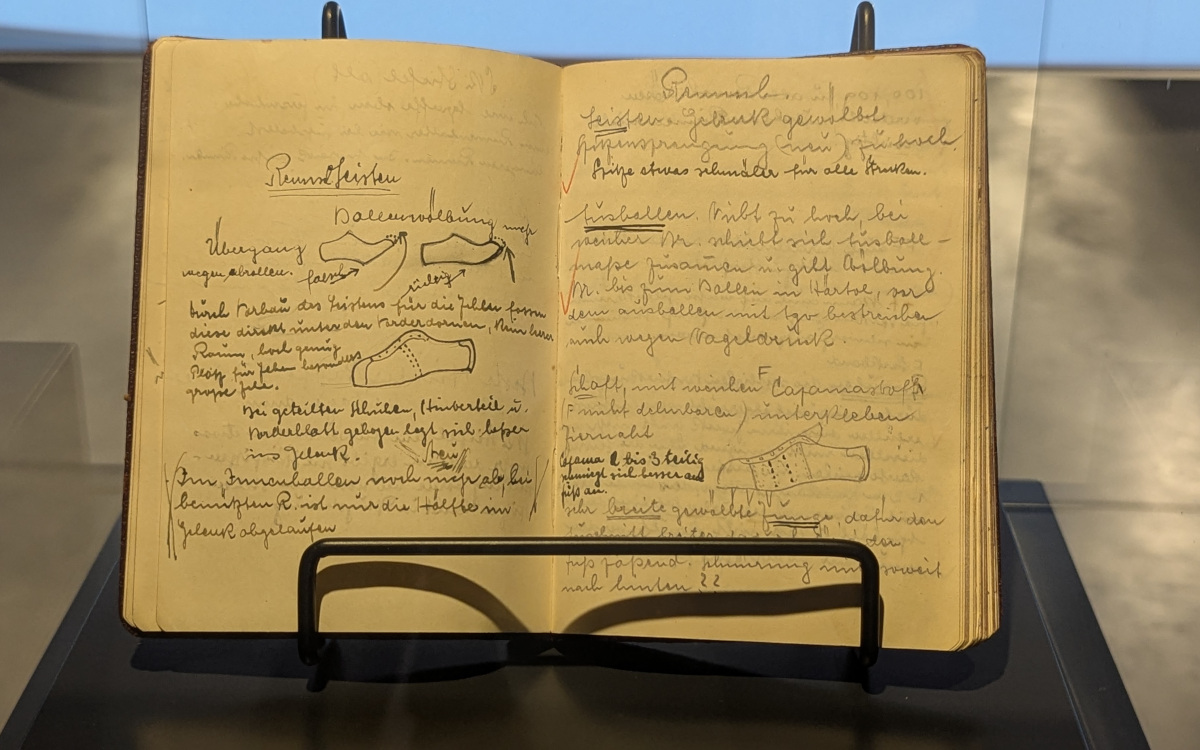 Rennsch.
Leisten
Ballenwölbung mehr
Übergang
wegen abrollen. falsch
richtig
durch Verbau des Leistens für die Zehen
diese direkt unter den Vorderdornen,
Raum, hoch genug
Platz für Zehen besonders
große Zehe.
Bei geteilten Schuhen, Hinterteil u.
Vorderblatt gebogen legt sich besser
ins Gelenk. neu
Im Innenballen noch mehr ab, bei
benützten R. ist nur die Hälfte im
Gelenk abgelaufen
Leisten Gelenk gewölbt
Spitzensprengung (neu) zu hoch.
Spitze etwas schmäler für alle Strecken.
Fusballen. Nicht zu hoch, bei
weicher Br. schiebt sich Fusball-
maße zusamen u. gibt Wölbung.
Br. bis zum Ballen in Härte, vor
dem ausballen mit bestreichen
auch wegen Nageldruck.
Schaft, mit weichen F
(F nicht dehnbaren) unterkleben
Ziernaht
2 bis 3 teilig
schmiegt sich besser am
Fuß an.
sehr breite gewölbte Zunge, dafür den
Fuß paßend. Schnürung nur soweit
nach hinten ??